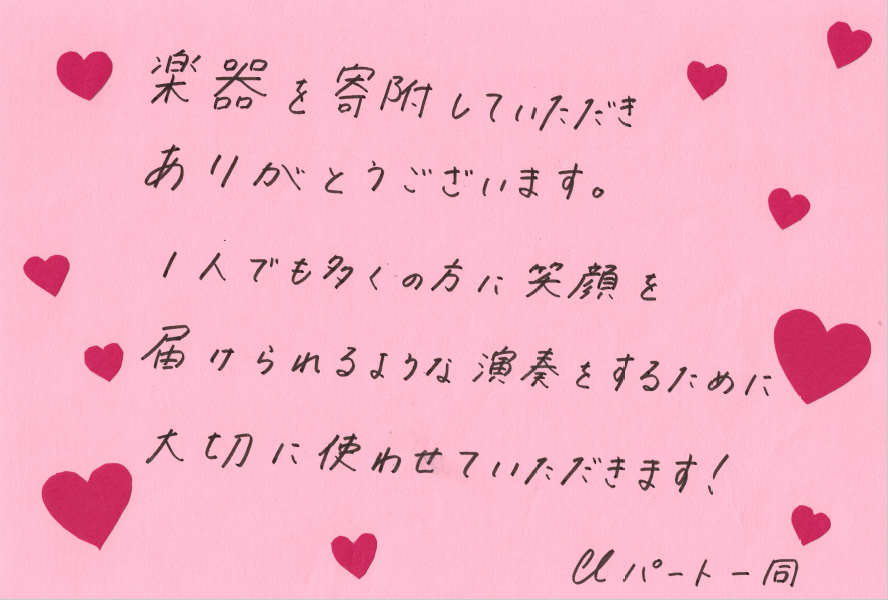 楽器を寄附していただき
ありがとうございます。
1人でも多くの方に笑顔を
届けられるような演奏をするために
大切に使わせていただきます!
Clパート一同